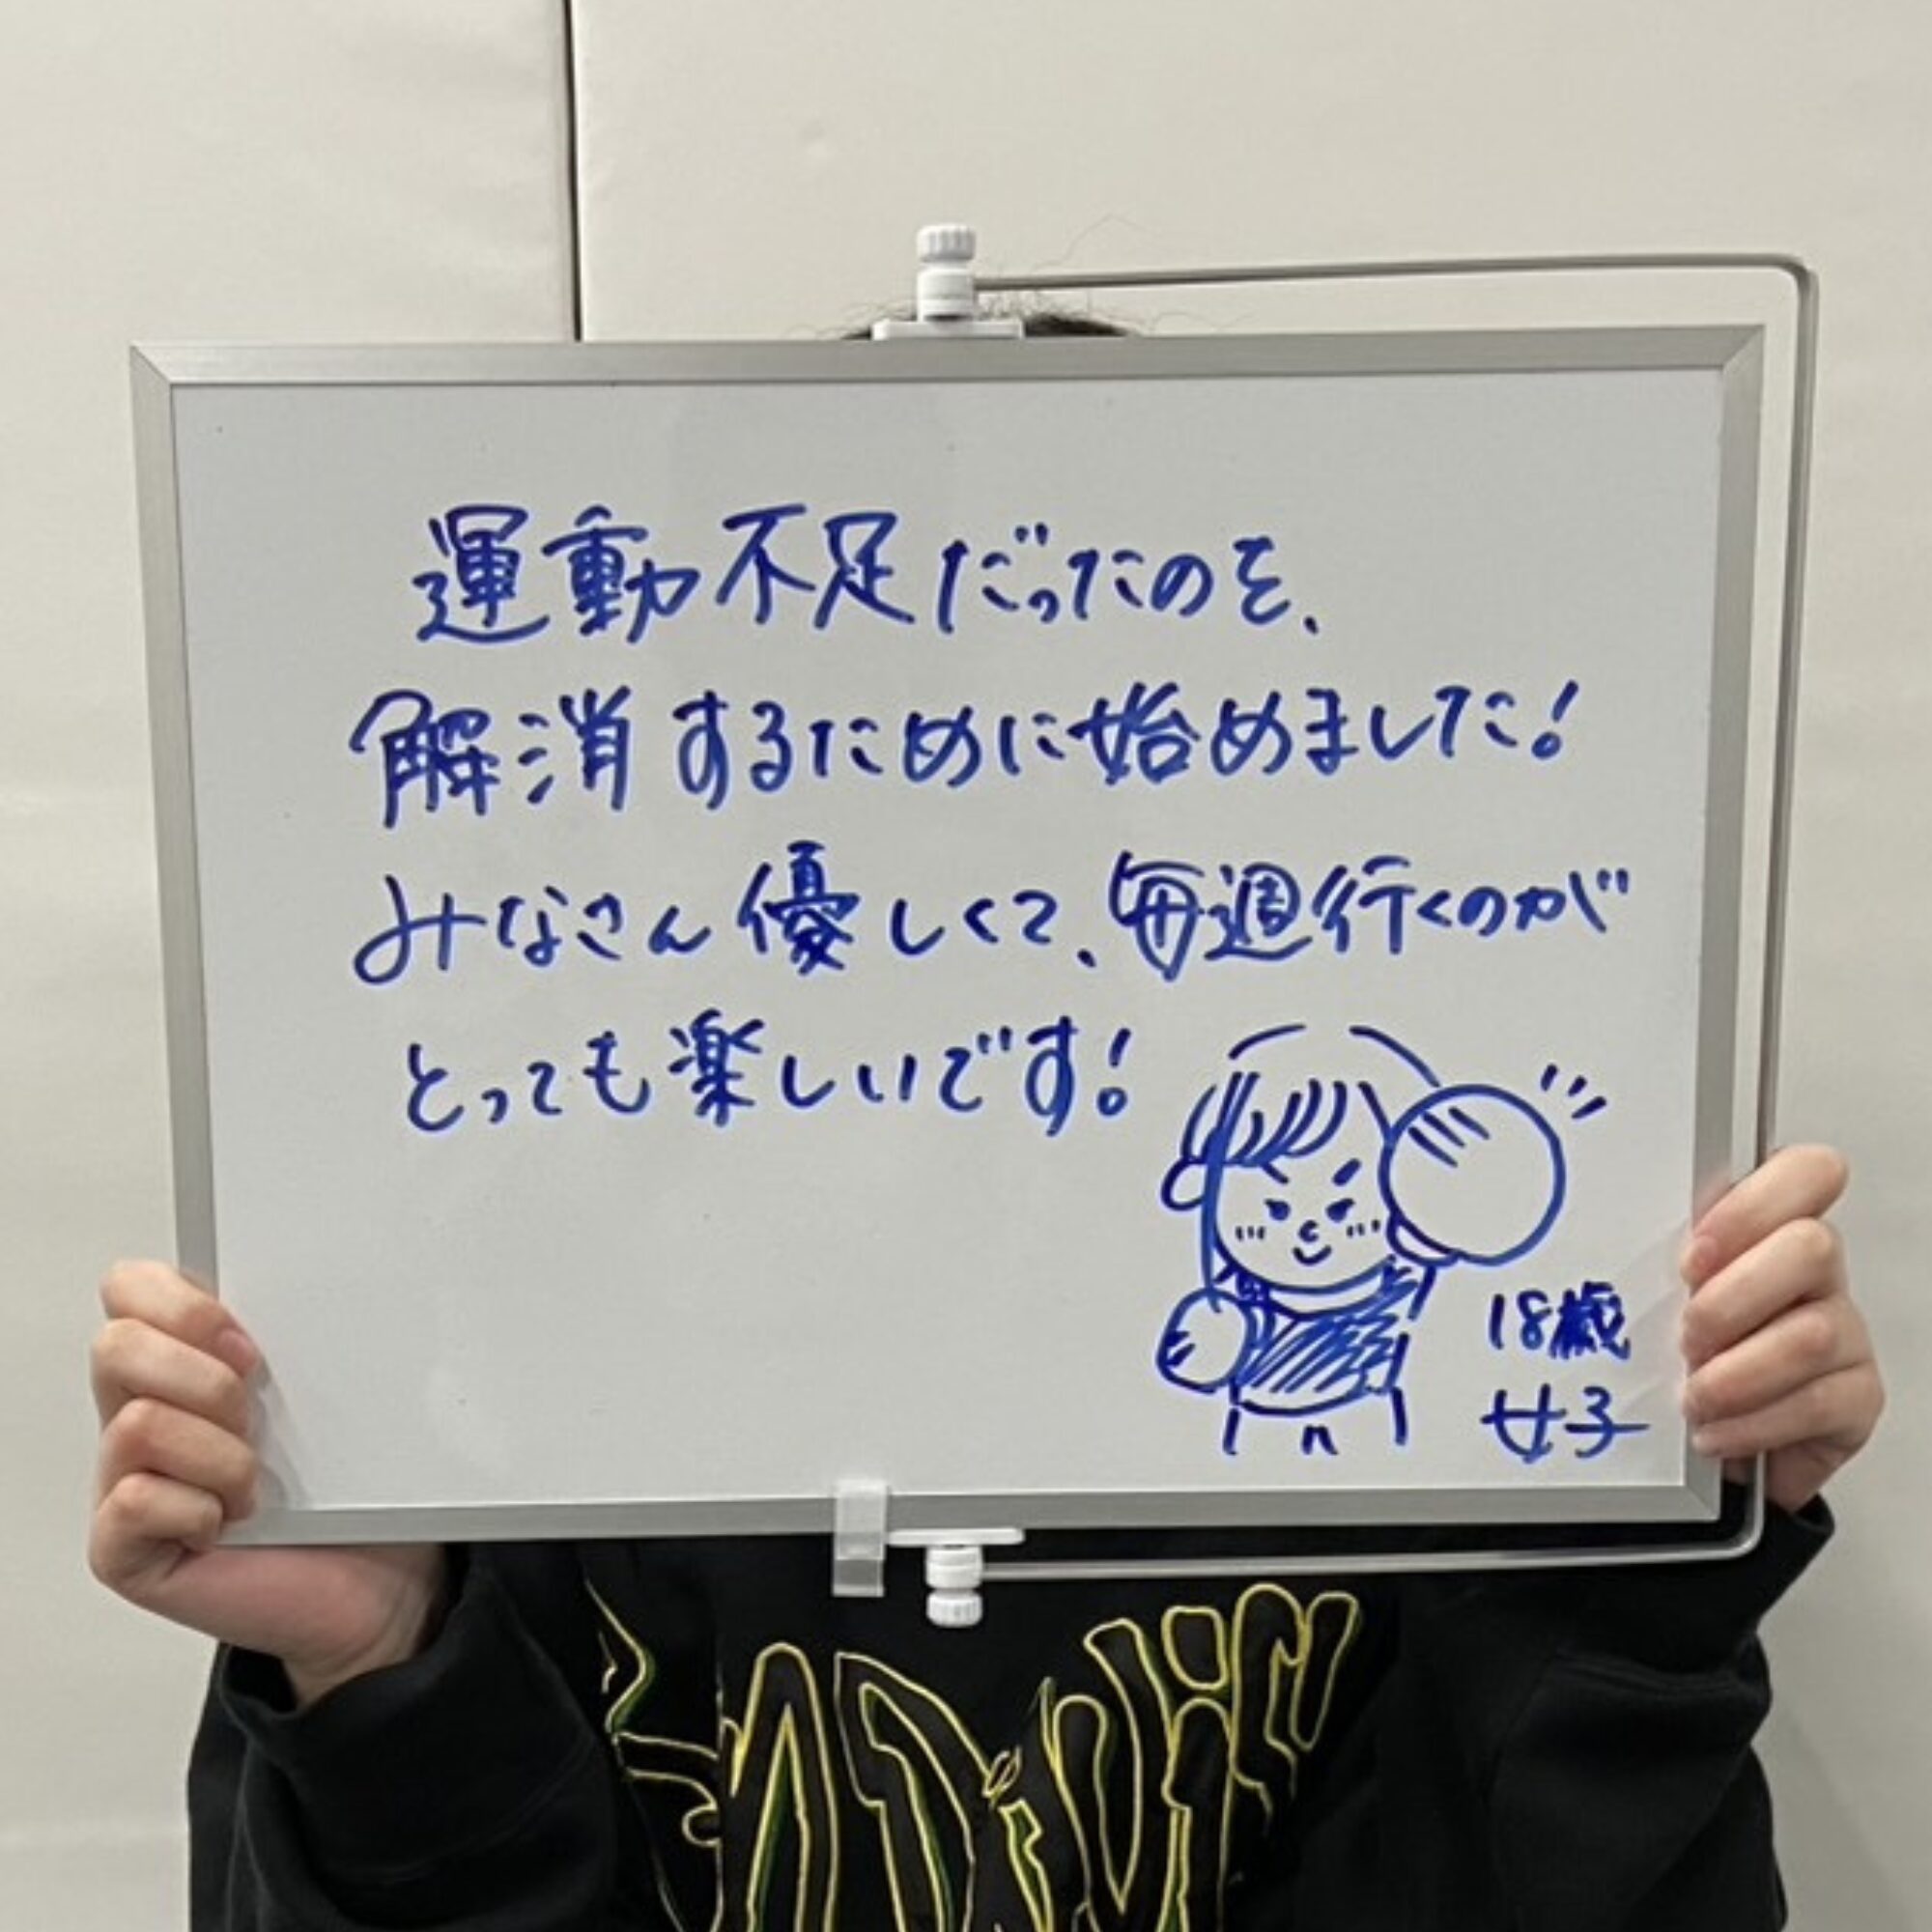 運動不足だったのを、
解消するために始めました!
みなさん優しくて、毎週行くのが
とっても楽しいです!
18歳
女子